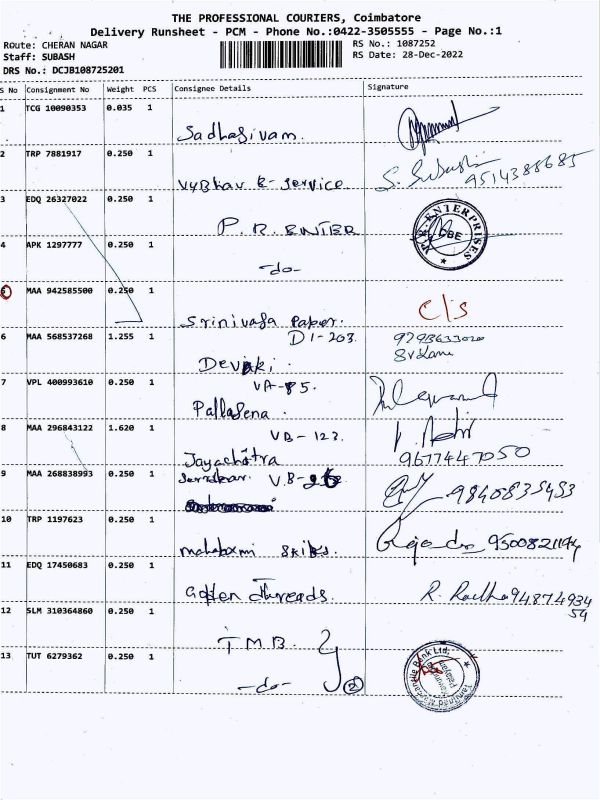 THE PROFESSIONAL COURIERS, Coimbatore
Delivery Runsheet - PCM - Phone No.:0422-3505555 - Page No.:1
Route: CHERAN NAGAR
RS No.: 1087252
Staff: SUBASH
RS Date: 28-Dec-2022
DRS No.: DCJB108725201
S No Consignment No Weight PCS Consignee Details Signature
1 TCG 10090353 0.035 1
Sadhasivam.
2 TRP 7881917 0.250 1
VyBhav E-Service
9514388685
3 EDQ 26327022 0.250 1
P.R. ENTER
P.R. ENTERPRISES
CBE
4 APK 1297777 0.250 1
-do-
5 MAA 942585500 0.250 1
Srinivasa Paper.
C/s
6 MAA 568537268 1.255 1
D1-203.
Devaki.
7 VPL 400993610 0.250 1
VA-85.
Pallasena.
8 MAA 296843122 1.620 1
VB-123.
Jayachitra
9677447050
9 MAA 268838993 0.250 1
VB-
9840835453
10 TRP 1197623 0.250 1
9500821194
11 EDQ 17450683 0.250 1
Golden Threads.
R. Radha 94874934
54
12 SLM 310364860 0.250 1
T.M.B.
13 TUT 6279362 0.250 1
-do-
2
Tamilnad Mercantile Bank Ltd.